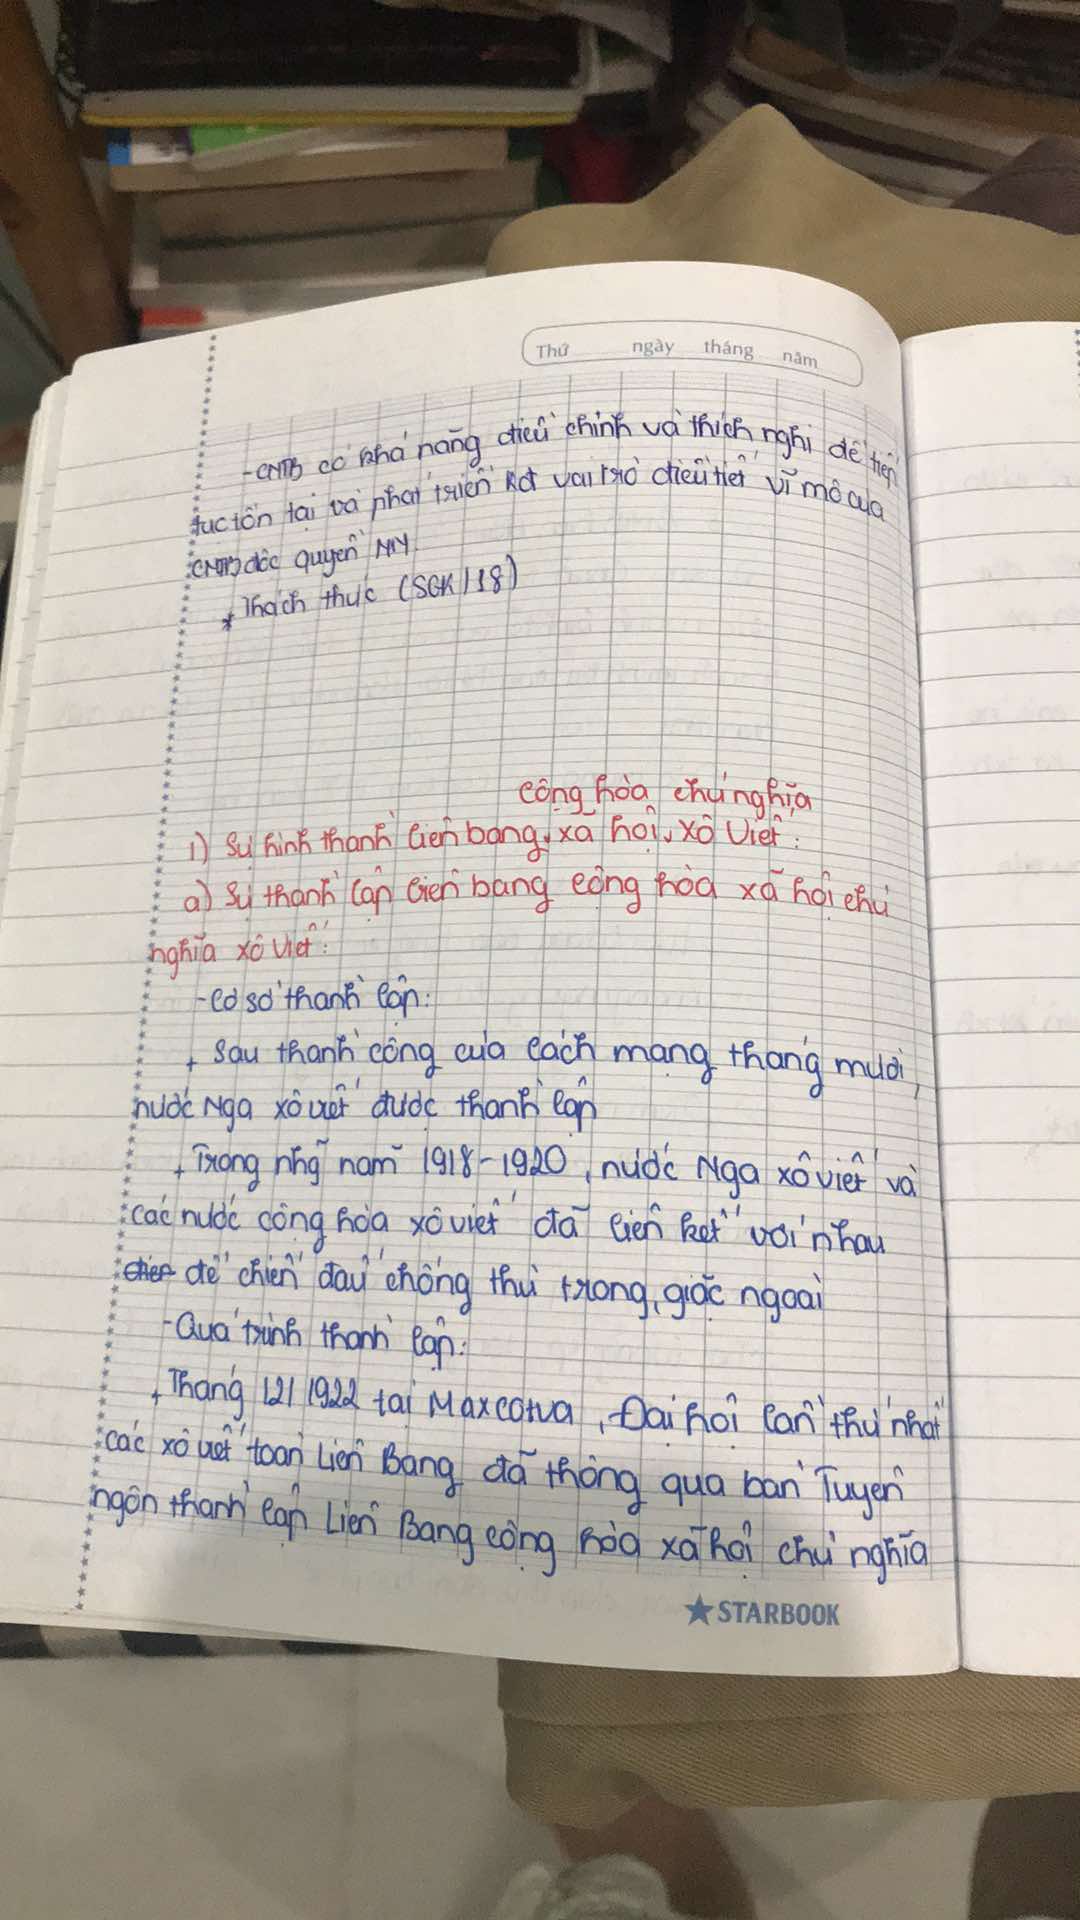 Thứ ngày tháng năm
-CNTB có khả năng điều chỉnh và thích nghi để tiếp
tục tồn tại và phát triển vai trò điều tiết vĩ mô của
CNTB độc quyền NN
* Thách thức (SGK/18)
cộng hòa chủ nghĩa
1) Sự hình thành liên bang xã hội Xô Viết:
a) Sự thành lập liên bang cộng hòa xã hội chủ
nghĩa xô viết:
-Cơ sở thành lập:
+ Sau thành công của cách mạng tháng mười,
nước Nga xô viết được thành lập
+ Trong nhg năm 1918-1920, nước Nga xô viết và
các nước cộng hòa xô viết đã liên kết với nhau
để chiến đấu chống thù trong, giặc ngoài
-Quá trình thành lập:
+ Tháng 12/1922 tại Maxcơva, Đại hội lần thứ nhất
các xô viết toàn Liên Bang đã thông qua bản Tuyên
ngôn thành lập Liên Bang cộng hòa xã hội chủ nghĩa
STARBOOK